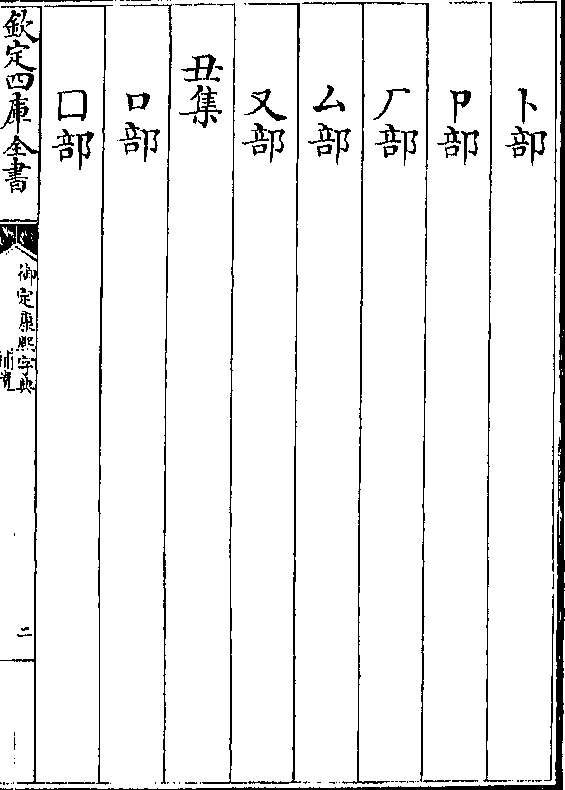 卜部
卩部
厂部
厶部
又部
丑集
口部
囗部
欽定四庫全書
御定康熙字典
補遺
二